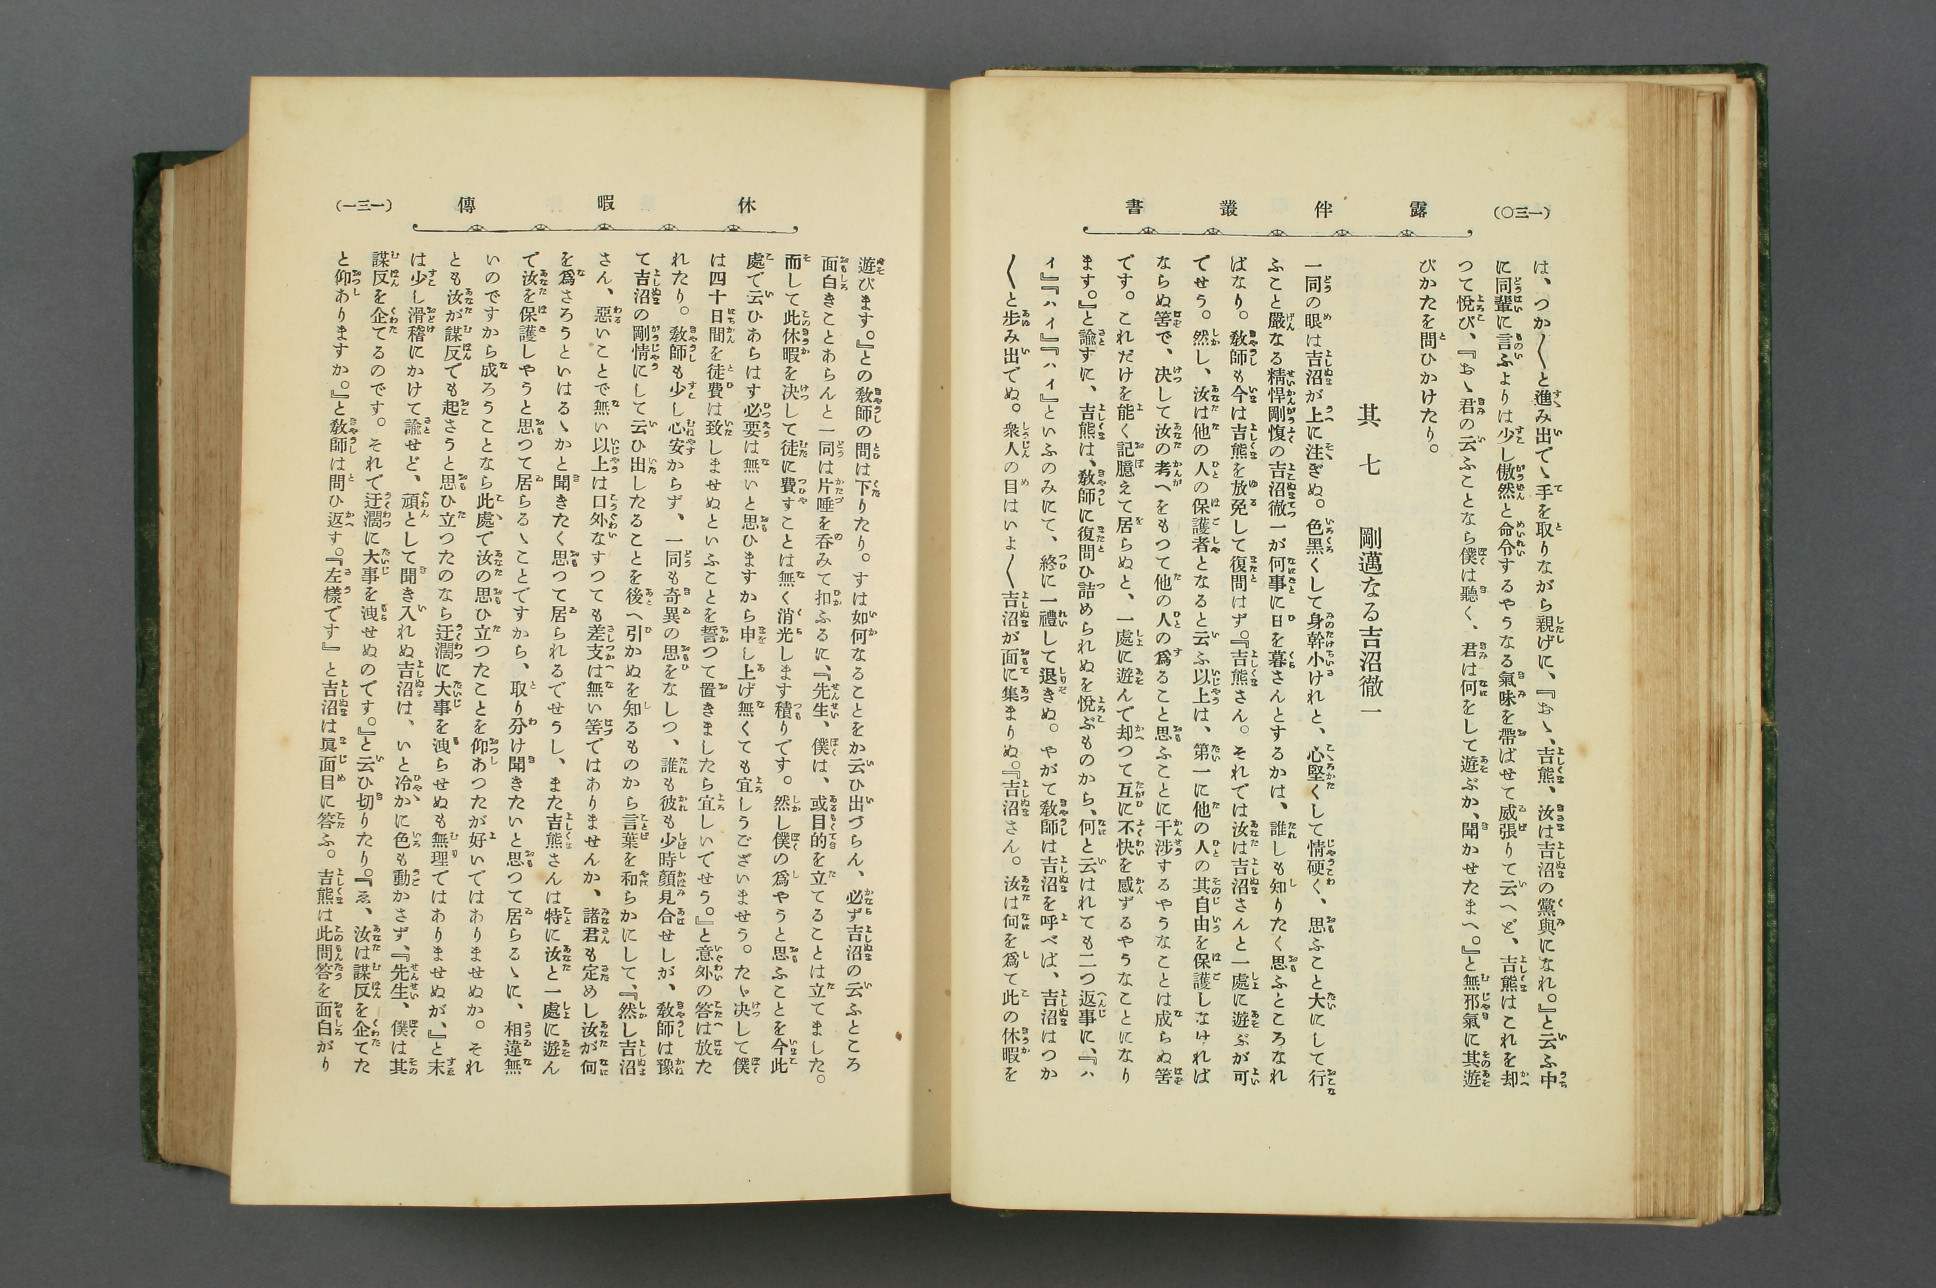 (一三〇)
露伴叢書
は、つか〱と進み出でゝ手を取りながら親しげに、『おゝ、吉熊、汝は吉沼の黨與になれ。』と云ふ中
に同輩に言ふよりは少し傲然と命令するやうなる氣味を帶ばせて威張りて云へど、吉熊はこれを却
つて悅び、『おゝ君の云ふことなら僕は聽く、君は何をして遊ぶか、聞かせたまへ。』と無邪氣に其遊
びかたを問ひかけたり。
其七 剛邁なる吉沼徹一
一同の眼は吉沼が上に注ぎぬ。色黑くして身幹小けれと、心堅くして情硬く、思ふこと大にして行
ふこと嚴なる精悍剛愎の吉沼徹一が何事に日を暮さんとするかは、誰しも知りたく思ふところなれ
ばなり。敎師も今は吉熊を放免して復問はず。『吉熊さん。それでは汝は吉沼さんと一處に遊ぶが可
でせう。然し、汝は他の人の保護者となると云ふ以上は、第一に他の人の其自由を保護しなければ
ならぬ筈で、决して汝の考へをもつて他の人の爲ること思ふことに干涉するやうなことは成らぬ筈
です。これだけを能く記臆えて居らぬと、一處に遊んで却つて互に不快を感ずるやうなことになり
ます。』と諭すに、吉熊は、敎師に復問ひ詰められぬを悅ぶものから、何と云はれても二つ返事に、『ハ
イ』『ハイ』『ハイ』といふのみにて、終に一禮して退きぬ。やがて敎師は吉沼を呼べば、吉沼はつか
〱と步み出でぬ。衆人の目はいよ〱吉沼が面に集まりぬ。『吉沼さん。汝は何を爲て此の休暇を
休暇傳
(一三一)
遊びます。』との敎師の問は下りたり。すは如何なることをか云ひ出づらん、必ず吉沼の云ふところ
面白きことあらんと一同は片唾を呑みて扣ふるに、『先生、僕は、或目的を立てることは立てました。
而して此休暇を決して徒に費すことは無く消光します積りです。然し僕の爲やうと思ふことを今此
處で云ひあらはす必要は無いと思ひますから申し上げ無くても宜しうございませう。たゞ决して僕
は四十日間を徒費は致しませぬといふことを誓つて置きましたら宜しいでせう。』と意外の答は放た
れたり。敎師も少し心安からず、一同も奇異の思をなしつ、誰も彼も少時顔見合せしが、敎師は豫
て吉沼の剛情にして云ひ出したることを後へ引かぬを知るものから言葉を和らかにして、『然し吉沼
さん、惡いことで無い以上は口外なすつても差支は無い筈ではありませんか、諸君も定めし汝が何
を爲さろうといはるゝかと聞きたく思つて居られるでせうし、また吉熊さんは特に汝と一處に遊ん
で汝を保護しやうと思つて居らるゝことですから、取り分け聞きたいと思つて居らるゝに、相違無
いのですから成ろうことなら此處で汝の思ひ立つたことを仰あつたが好いではありませぬか。それ
とも汝が謀反でも起さうと思ひ立つたのなら迂濶に大事を洩らせぬも無理ではありませぬが、』と末
は少し滑稽にかけて諭せど、頑として聞き入れぬ吉沼は、いと冷かに色も動かさず、『先生、僕は其
謀反を企てるのです。それで迂濶に大事を洩せぬのです。』と云ひ切りたり。『ゑ、汝は謀反を企てた
と仰ありますか。』と敎師は問ひ返す。『左樣です』と吉沼は眞面目に答ふ。吉熊は此問答を面白がり